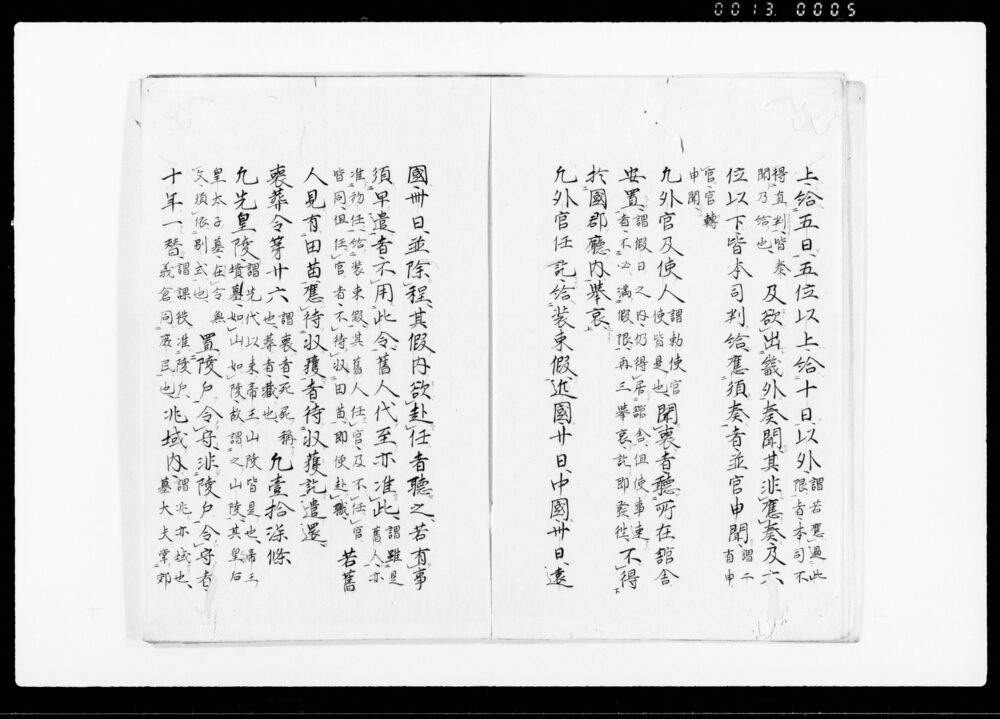 0013 0005
上給五日五位以上給十日以外謂若應過此限者本司不
得直判皆奏聞乃給也及欲出畿外奏聞其非應奏及六
位以下皆本司判給應須奏者並官申聞謂二官有申
官官轉申聞
凡外官及使人謂勅使官使皆是也聞喪者聽所在舘舎
安置謂假日之内仍得居舘舎但使事速者不必滿假限再三擧哀訖即發徃不得
於國郡廳内擧哀
凡外官任訖給装束假近國廿日中國卅日遠
國卌日並除程其假内欲赴任者聽之若有事
須早遣者不用此令舊人代至亦准此謂雖是舊人亦
准初任給装束假其舊人任官及不任官皆同但任官者不待収田苗即使赴職若舊
人見有田苗應待収獲者待収獲訖遣還
喪葬令第廿六謂喪者死屍稱也葬者藏也凡壹拾漆條
凡先皇陵謂先代以來帝王山陵皆是也帝王墳墓如山如陵故謂之山陵其皇后
皇太子墓在令無文須依別式也置陵戸令守非陵戸令守者
十年一替謂課役准陵戸義倉同居民也兆域内謂兆亦域也墓大夫掌郊